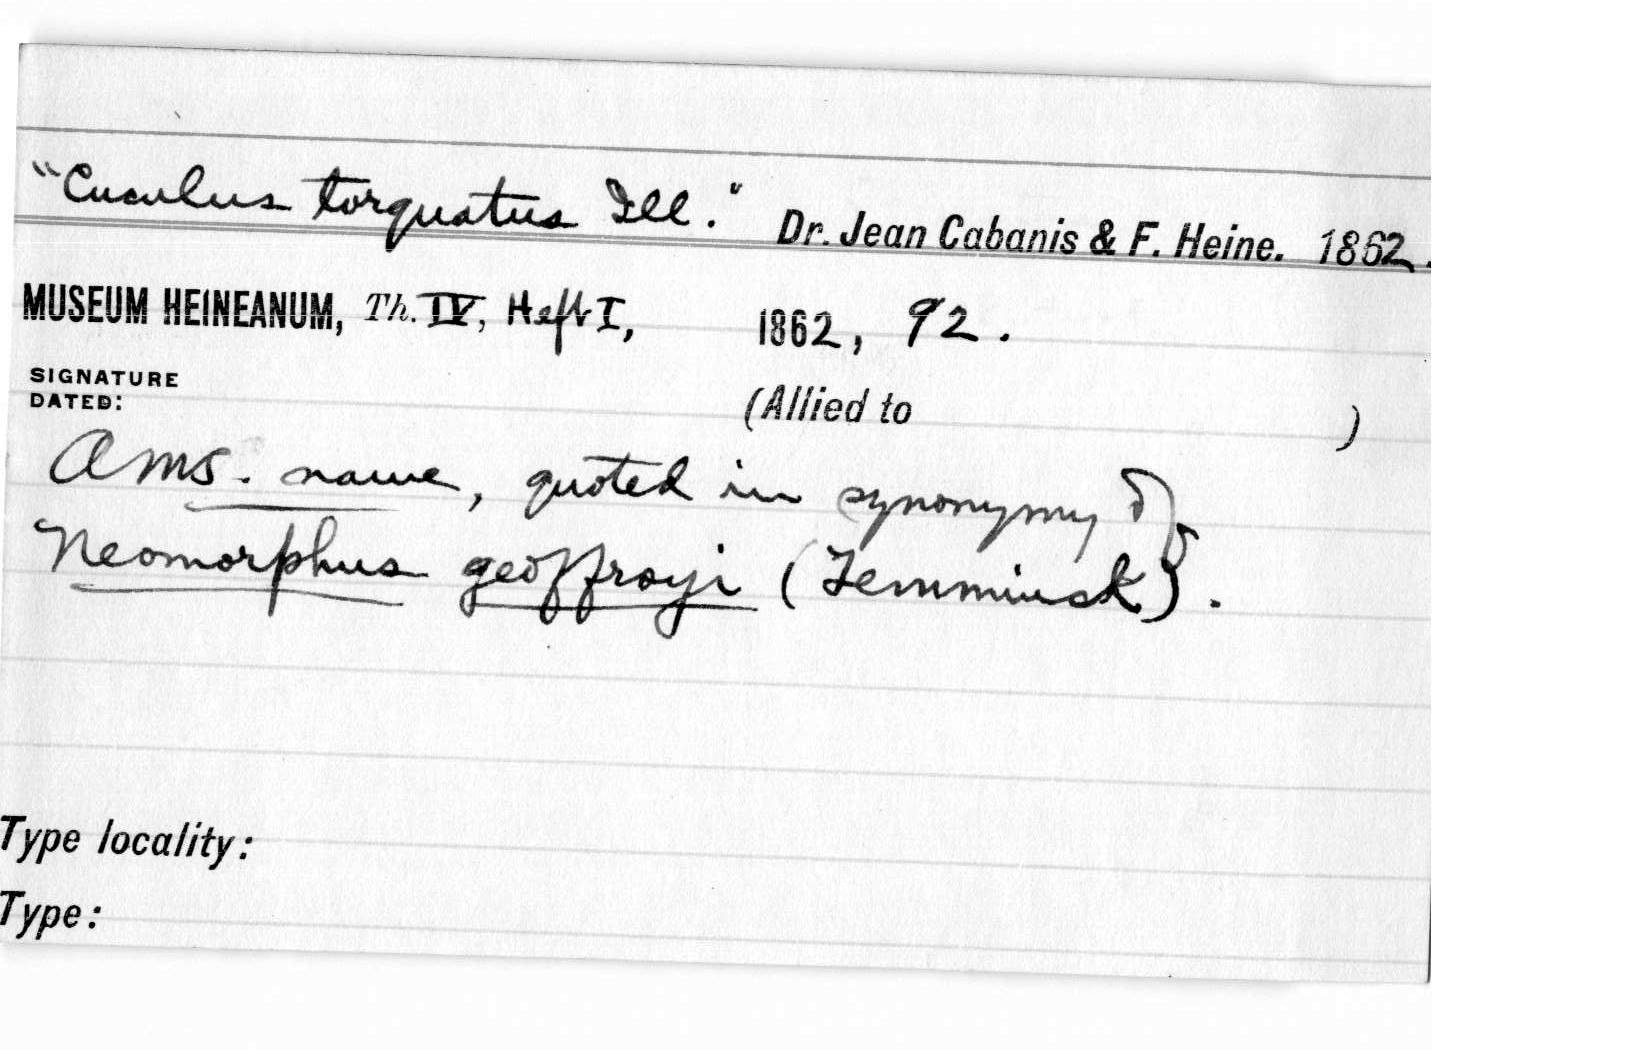 "Cuculus torquatus Ill." Dr. Jean Cabanis & F. Heine. 1862.
MUSEUM HEINEANUM, Th. IV, Heft I, 1862, 92.
SIGNATURE
DATED:
(Allied to )
A MS. name, quoted in synonymy of
Neomorphus geoffroyi (Temminck).
Type locality:
Type: